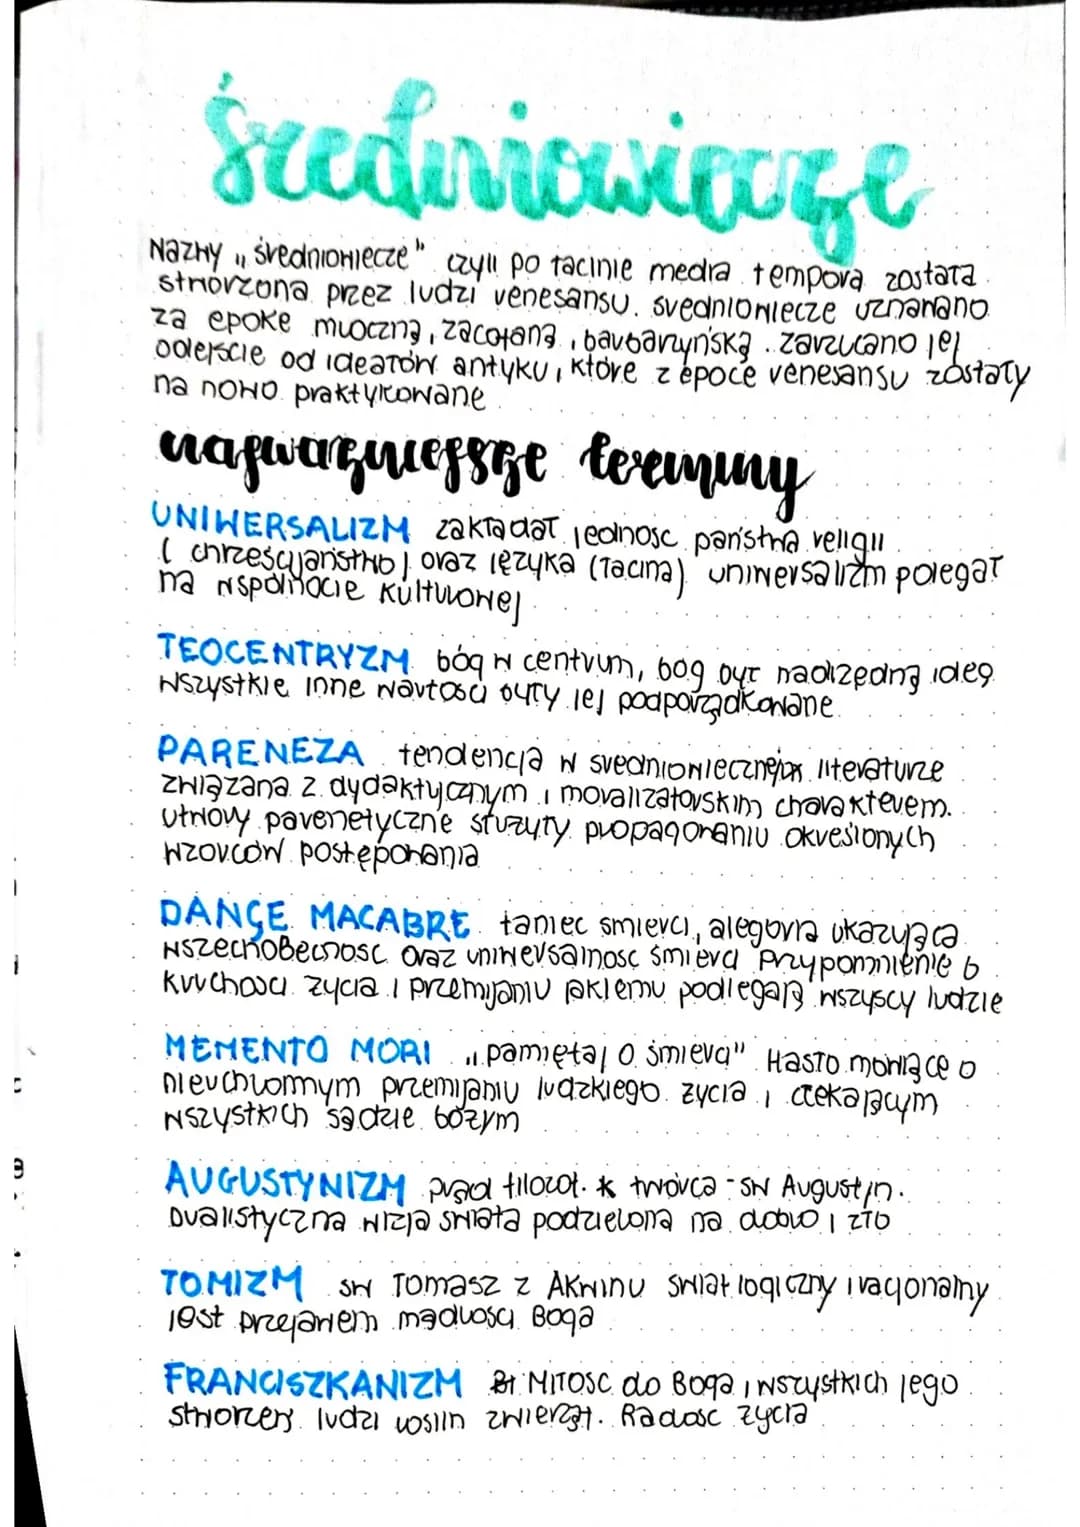 średniowiecze
Nazwy „średniowiecze" czyli po łacinie media tempora została
stworzona przez ludzi renesansu. średniowiecze uznawano
za epoke mroczną, zacofaną, barbarzyńską. zarzucano jej
odejscie od ideałów antyku, które z epoce renesansu zostały
na nowo praktykowane
najważniejsze terminy
UNIWERSALIZM zakładał jednosc państwa religii
( chrześcijaństwo) oraz języka (łacina) uniwersalizm polegał
na wspólnocie kulturowej
TEOCENTRYZM bóg w centrum, bog był nadrzędną ideą
wszystkie inne wartosci były jej podporządkowane
PARENEZA tendencja w sredniowiecznej literaturze
związana z dydaktycznym i moralizatorskim charakterem.
utwory parenetyczne służyły propagowaniu okreslonych
wzorców postępowania
DANCE MACABRE taniec smierci, alegoria ukazująca
wszechobecnosc oraz uniwersalnosc śmierci Przypomnienie o
kruchosci życia i przemijaniu jakiemu podlegają wszyscy ludzie
MEMENTO MORI „pamiętaj o śmierci" Hasło mówiące o
nieuchronnym przemijaniu ludzkiego życia i czekającym
wszystkich sądzie bożym
AUGUSTYNIZM prąd filozof. twórca - sw Augustyn.
Dualistyczna wizja swiata podzielona na dobro i zło
TOMIZM sw Tomasz z Akwinu swiat logiczny i racjonalny
jest przejawem mądrosci Boga
FRANCISZKANIZM Miłosc do Boga i wszystkich jego
stworzeń ludzi roslin zwierząt. Radosc życia